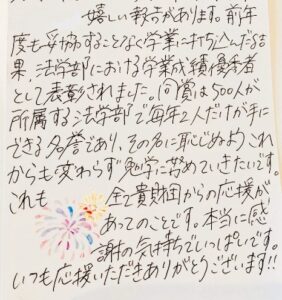 嬉しい報告があります。前年
度も妥協することなく学業に打ち込んだ結
果、法学部における学業成績優秀者
として表彰されました。同賞は500人が
所属する法学部で毎年2人だけが手に
できる名誉であり、その名に恥じぬようこれ
からも変わらず勉学に努めていきたいです。
これも 全て貴財団からの応援が
あってのことです。本当に感
謝の気持ちでいっぱいです。
いつも応援いただきありがとうございます!!